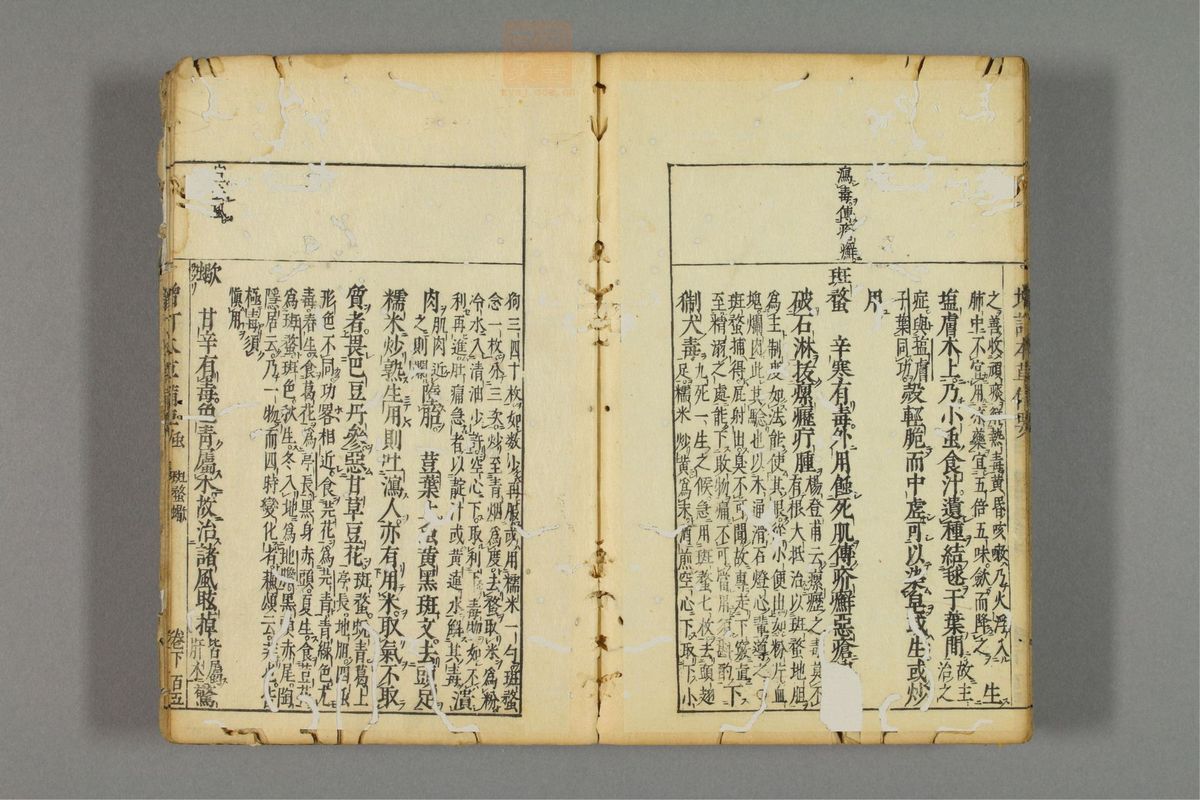 之善收頑痰解熱毒黃昏咳嗽乃火浮入
肺中不宜用涼藥宜五倍五味斂而降之 生
鹽膚木上乃小虫食汁遺種結毬于葉間故主治之
症與鹽膚子葉同功 殼輕脆而中虛可以染皂或生或炒
用
瀉毒傅疥癬
斑蝥 辛寒有毒外用蝕死肌傅疥癬惡瘡
破石淋拔瘰癧疔腫 楊登甫云瘰癧之毒莫不有根大抵治以斑蝥地膽
為主制度如法能使其根從小便出如粉片血
塊爛肉此其驗也以木通滑石燈心輩導之
斑蝥捕得屁射出臭不可聞故專走下竅直
至精溺之處能下敗物痛不可當用須斟酌 下
猘犬毒 九死一生之候急用斑蝥七枚去頭翅足糯米炒黃為末酒煎空心下取下小
狗三四十枚如數少再服或用糯米一勺斑蝥
念一枚分三次炒至青烟為度去蝥取米為粉
冷水入清油少許空心下取利下毒物如不
利再進肝痛急者以靛汁或黃連水解其毒 潰
肉 肌肉近之則爛 墮胎 荳葉上蟲黃黑斑文去頭足
糯米炒熟生用則吐瀉人亦有用米取氣不取
質者畏巴豆丹參惡甘草豆花 斑蝥芫青葛上亭長地膽四虫
形色不同功畧相近食芫花為芫青青綠色尤
毒春生食葛花為亭長黑身赤頭夏生食荳花
為斑蝥斑色秋生冬入地為地膽黑頭赤尾
隱居云乃一物而四時變化有
極毒須
慎用
蠍
甘辛有毒色青屬木故治諸風眩掉 皆屬肝木 驚
斑蝥蠍
卷下
百五